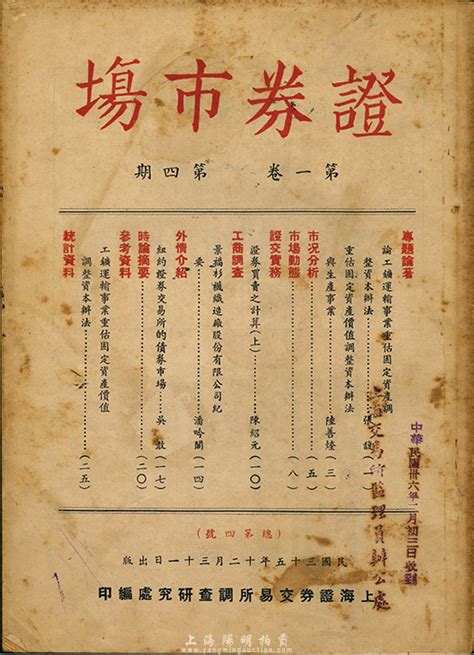 證券市場
第一卷　第四期
專題論著
論工鑛運輸事業重估固定資產調
整資本辦法……張（一）
重估固定資產價值調整資本辦法
與生產事業……陸善熾（三）
市况分析……（五）
市場動態……（八）
證交實務
證券買賣之計算（上）……陳紹元（一〇）
工商調查
景福衫襪織造廠股份有限公司紀
要……潘吟閣（一四）
外情介紹
紐約證券交易所的債券市場……吳（一七）
時論摘要……（二〇）
參考資料
工鑛運輸事業重估固定資產價值
調整資本辦法……（二五）
統計資料
（總第四號）
民國三十五年十二月三十一日出版
上海證券交易所調查研究處編印
中華民國卅六年二月初三日收到
交易所監理員辦公處
上海陽明拍賣
www.yangmingauction.com